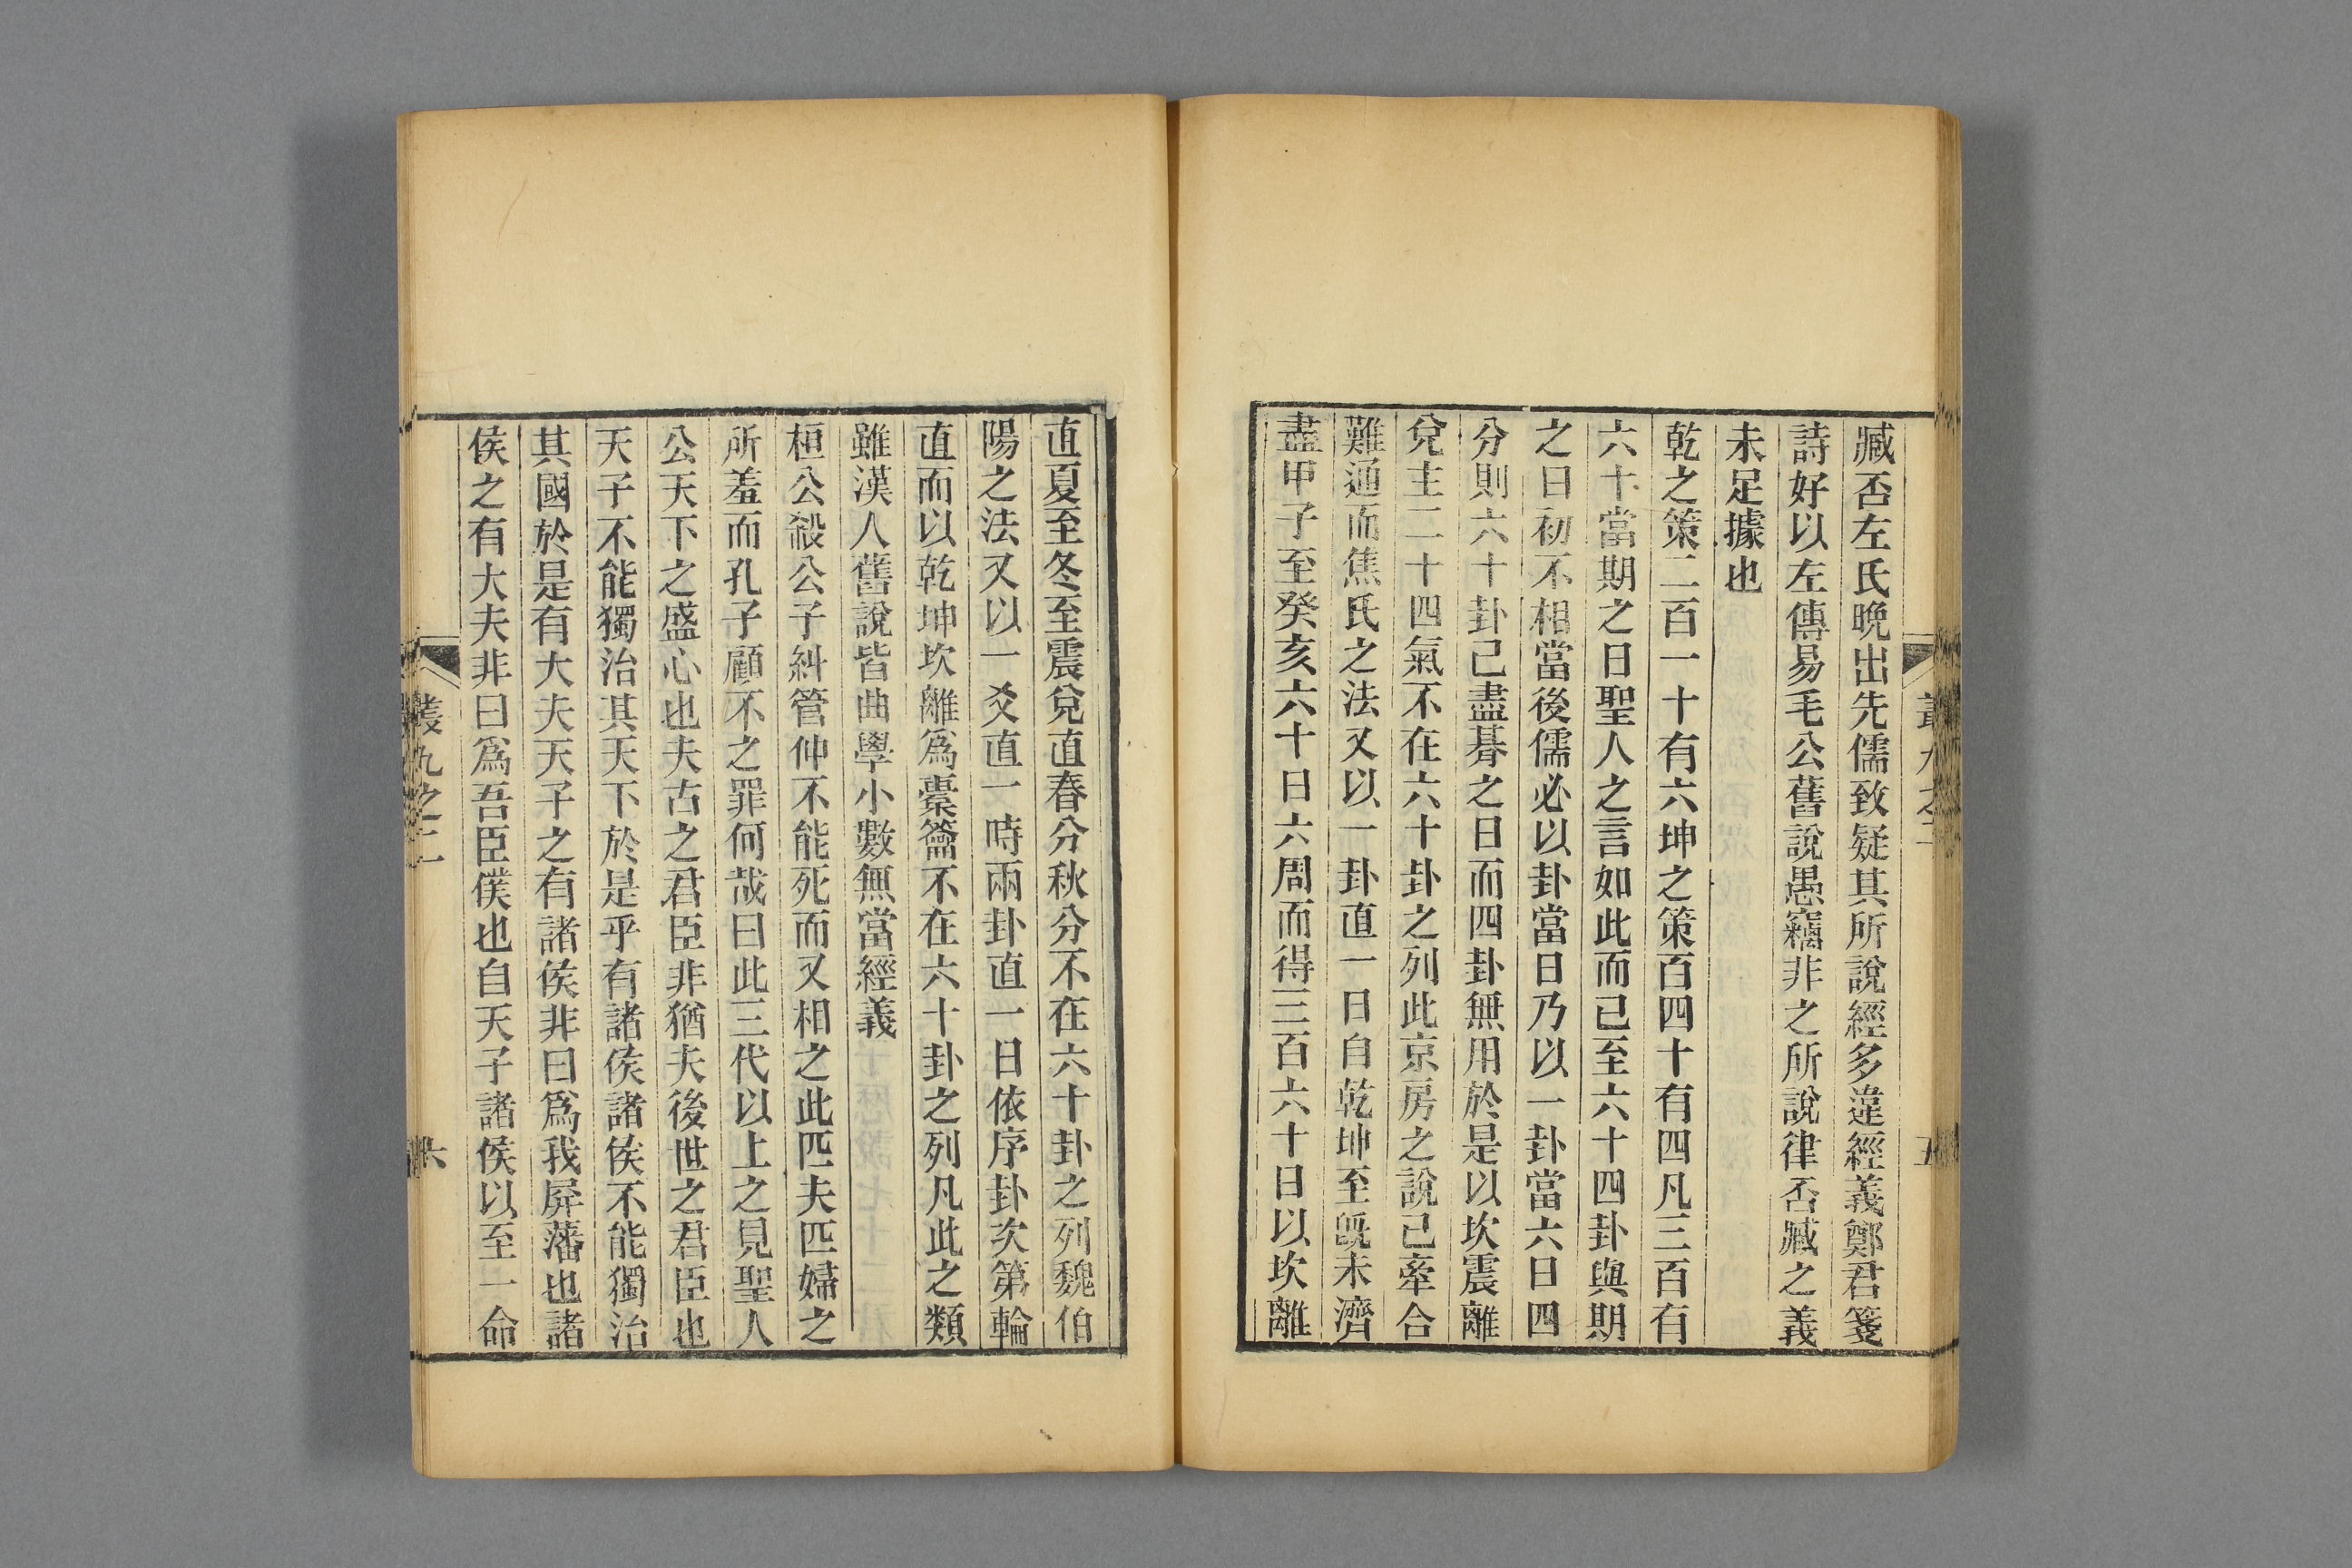 臧否左氏晩出先儒致疑其所說經多違經義鄭君箋
詩好以左傳易毛公舊說愚竊非之所說律否臧之義
未足據也
乾之策二百一十有六坤之策百四十有四凡三百有
六十當期之日聖人之言如此而已至六十四卦與期
之日初不相當後儒必以卦當日乃以一卦當六日四
分則六十卦已盡朞之日而四卦無用於是以坎震離
兌主二十四氣不在六十卦之列此京房之說已牽合
難通而焦氏之法又以一卦直一日自乾坤至旣未濟
盡甲子至癸亥六十日六周而得三百六十日以坎離
叢九之二
五
直夏至冬至震兌直春分秋分不在六十卦之列魏伯
陽之法又以一爻直一時兩卦直一日依序卦次第輪
直而以乾坤坎離爲橐籥不在六十卦之列凡此之類
雖漢人舊說皆曲學小數無當經義
桓公殺公子糾管仲不能死而又相之此匹夫匹婦之
所羞而孔子顧不之罪何哉曰此三代以上之見聖人
公天下之盛心也夫古之君臣非猶夫後世之君臣也
天子不能獨治其天下於是乎有諸侯諸侯不能獨治
其國於是有大夫天子之有諸侯非曰爲我屛藩也諸
侯之有大夫非曰爲吾臣僕也自天子諸侯以至一命
叢九之二
六